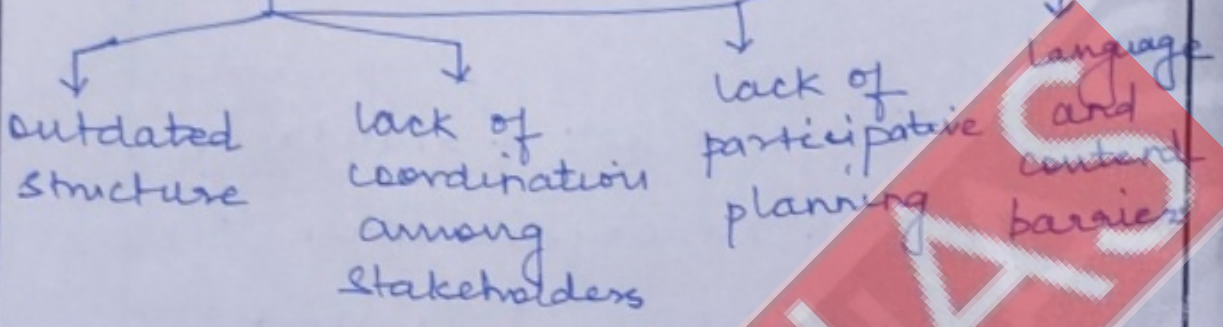 outdated
structure
lack of
coordination
among
stakeholders
lack of
participative
planning
language
and
content
barrier
IAS